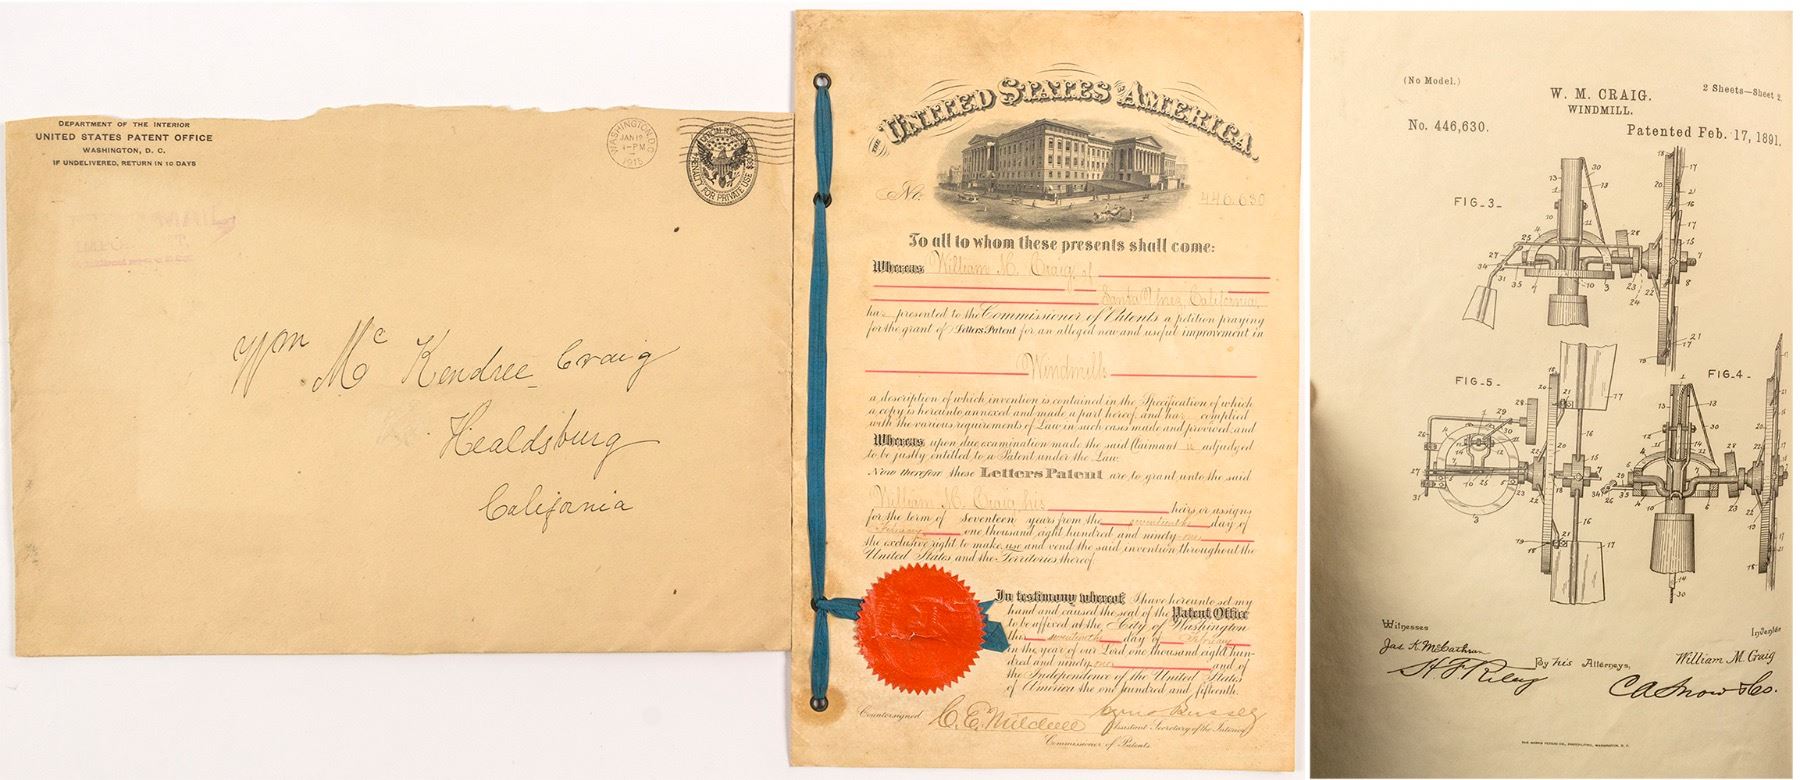 DEPARTMENT OF THE INTERIOR
UNITED STATES PATENT OFFICE
WASHINGTON, D. C.
IF UNDELIVERED, RETURN IN 10 DAYS
WASHINGTON, D.C.
JAN 12
4-PM
1915
PENALTY FOR PRIVATE USE $300
Wm Mc Kendree Craig
Healdsburg
California
THE UNITED STATES OF AMERICA.
No. 446,630
To all to whom these presents shall come:
Whereas William M. Craig, of
Santa Ynez, California,
has presented to the Commissioner of Patents a petition praying
for the grant of Letters Patent for an alleged new and useful improvement in
Windmills
a description of which invention is contained in the Specification of which
a copy is hereunto annexed and made a part hereof and has complied
with the various requirements of Law in such cases made and provided, and
Whereas upon due examination made the said Claimant is adjudged
to be justly entitled to a Patent under the Law.
Now therefore these Letters Patent are to grant unto the said
William M. Craig, his heirs or assigns
for the term of Seventeen years from the seventeenth day of
February one thousand eight hundred and ninety-one
the exclusive right to make, use and vend the said invention throughout the
United States and the Territories thereof.
In testimony whereof I have hereunto set my
hand and caused the seal of the Patent Office
to be affixed at the City of Washington
this seventeenth day of February
in the year of our Lord one thousand eight hun-
dred and ninety-one and of
the Independence of the United States
of America the one hundred and fifteenth.
Countersigned C. E. Mitchell Cyrus Bussey
Assistant Secretary of the Interior.
Commissioner of Patents.
(No Model.)
2 Sheets—Sheet 2.
W. M. CRAIG.
WINDMILL.
No. 446,630.
Patented Feb. 17, 1891.
FIG_3_
FIG_5_
FIG_4_
Witnesses
Inventor
Jas. K. McCathran
William M. Craig
H. F. Riley
By his Attorneys,
C A Snow & Co.